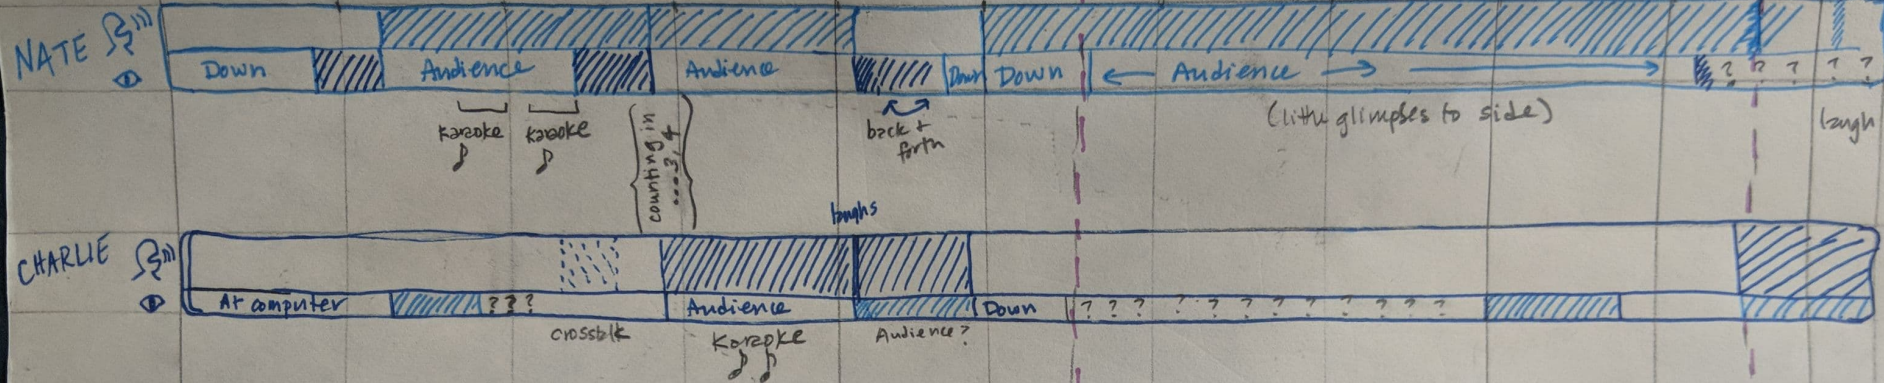 NATE
Down
Audience
Audience
Down
Down
← Audience →
? ? ? ? ?
karaoke
karaoke
counting in
...3, 4
back +
forth
(little glimpses to side)
laugh
laughs
CHARLIE
At computer
? ? ?
Audience
Down
? ? ? ? ? ? ? ? ? ? ?
crosstalk
Karaoke
Audience?